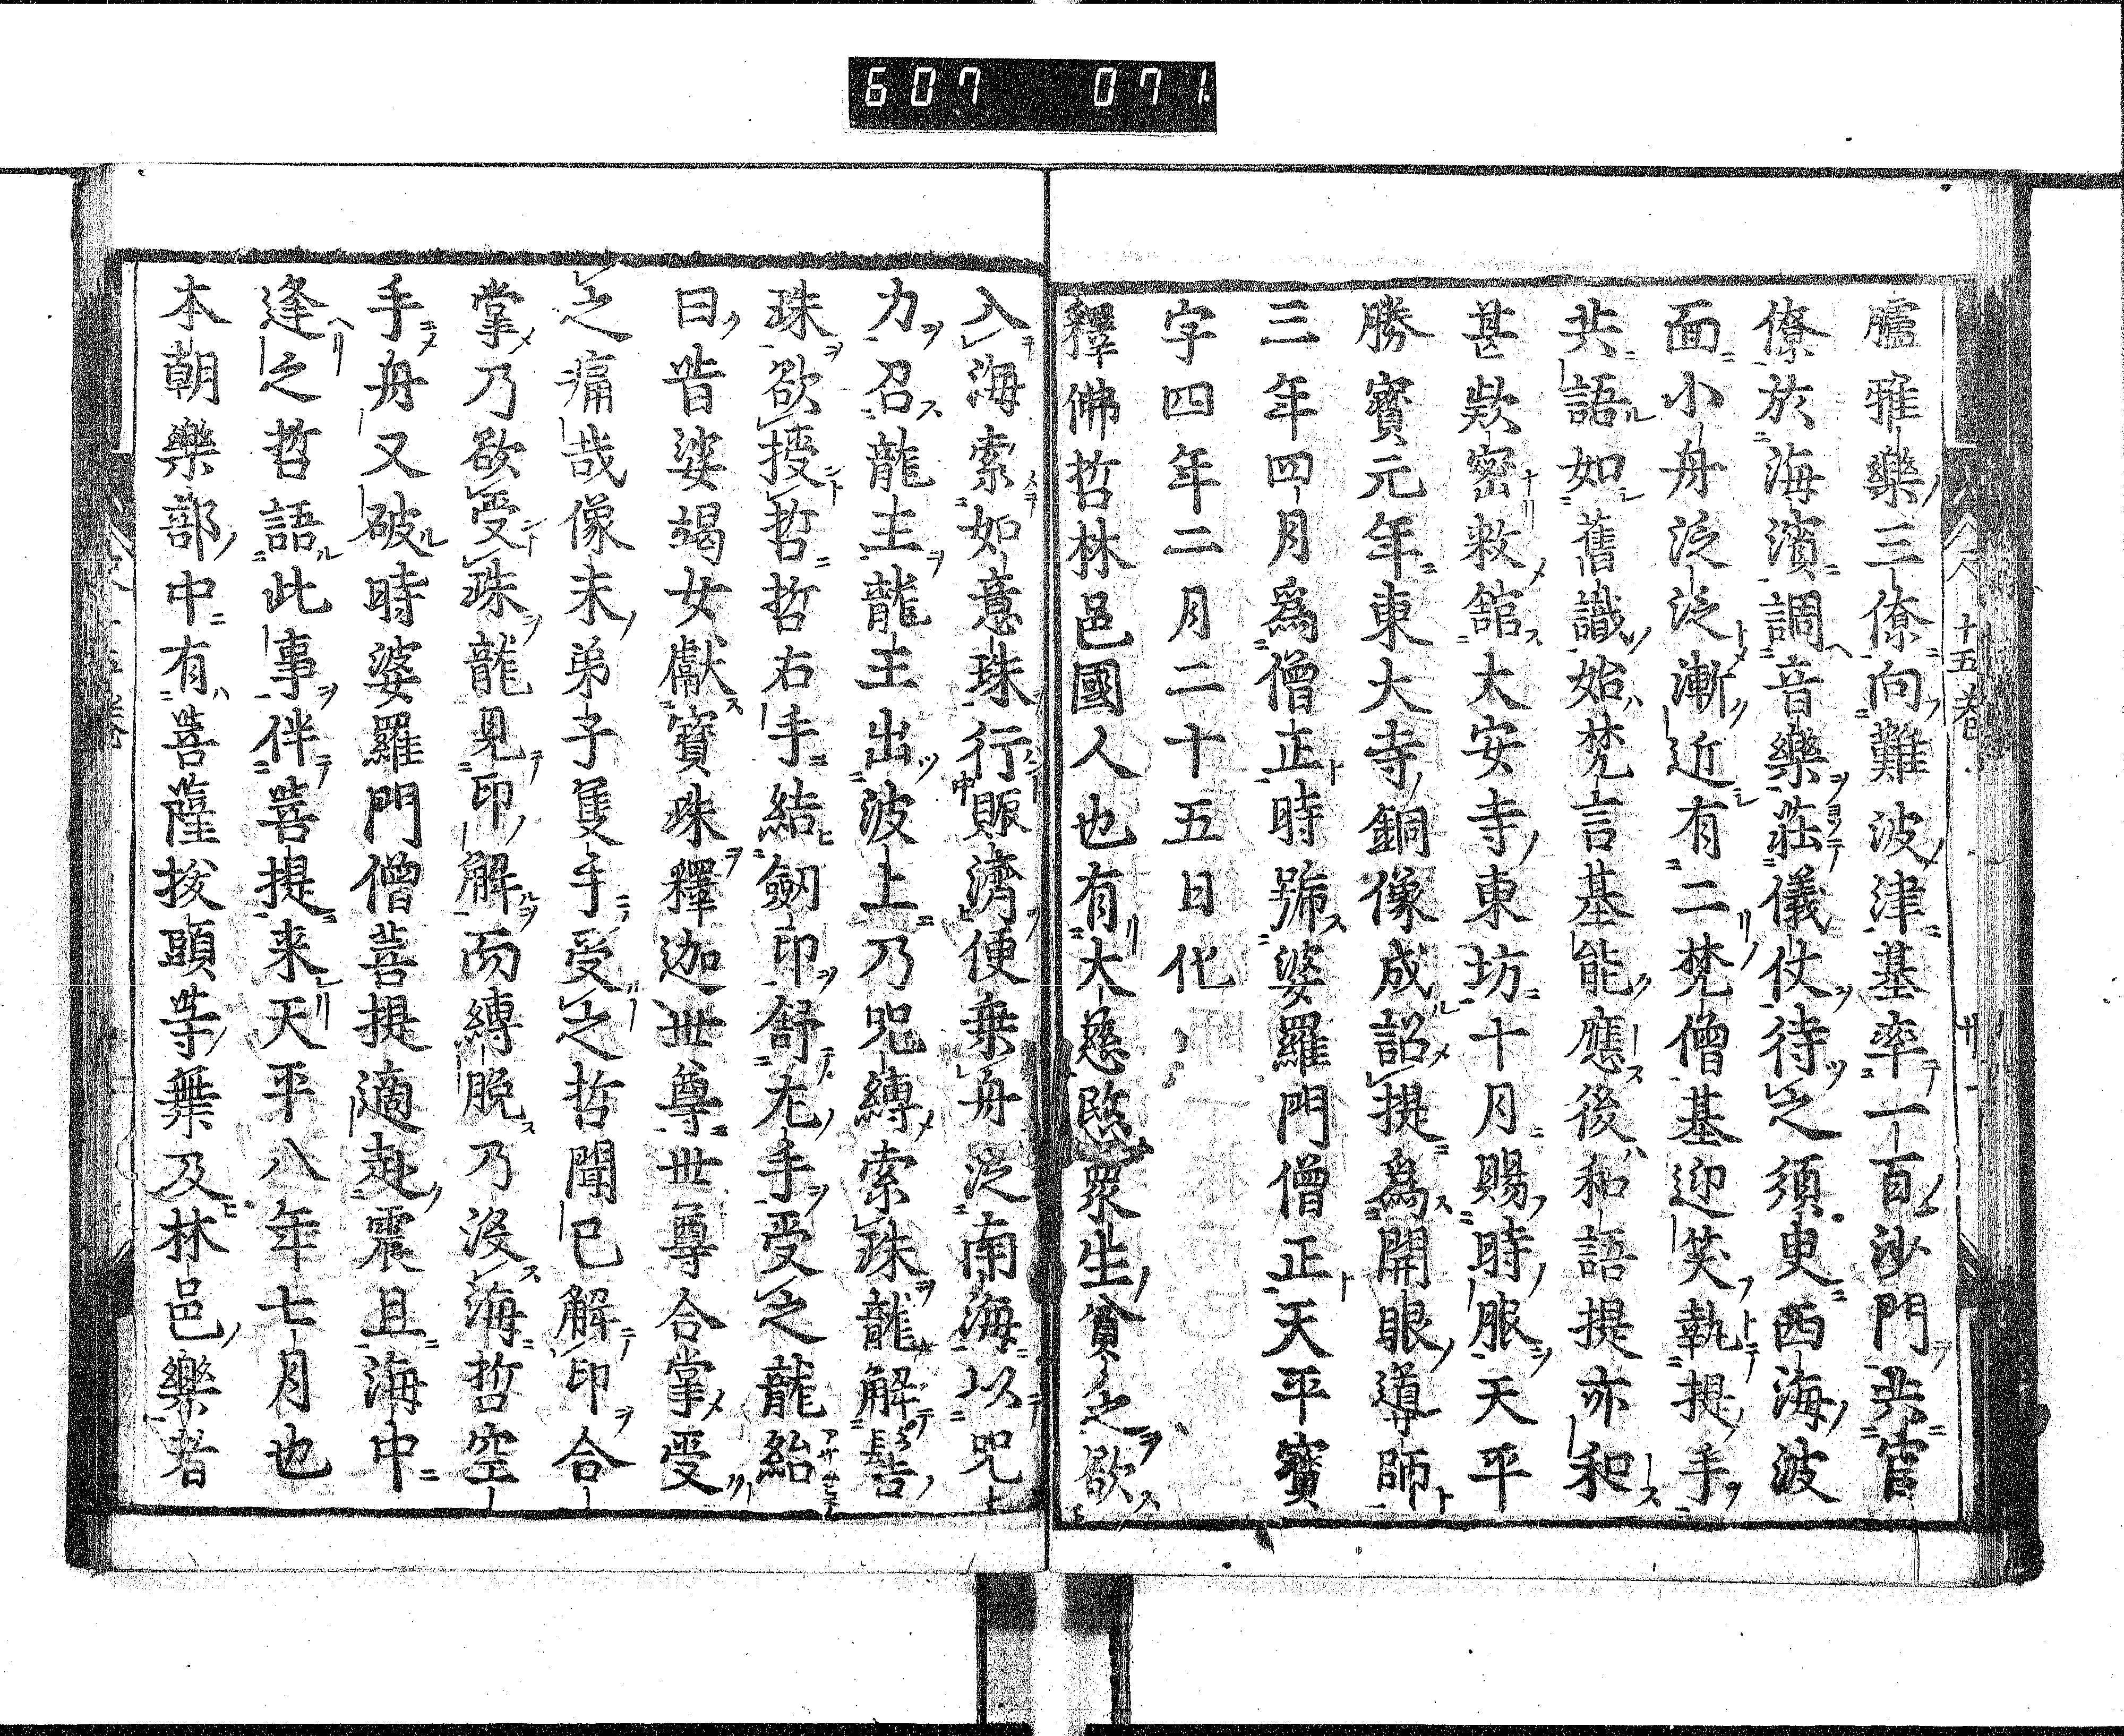 607 071
臚雅樂三僚向難波津基率一百沙門共官
僚於海濱調音樂莊儀仗待之須臾西海波
面小舟泛泛漸近有二梵僧基迎笑執提手
共語如舊識始梵言基能應後和語提亦和
甚歎密敕舘大安寺東坊十月賜時服天平
勝寶元年東大寺銅像成詔提爲開眼導師
三年四月爲僧正時號婆羅門僧正天平寶
字四年二月二十五日化
釋佛哲林邑國人也有大慈愍衆生貧之欲
入海索如意珠行賑濟便乗舟泛南海以咒
力召龍主龍主出波上乃咒縛索珠龍解髻
珠欲授哲哲右手結劒印舒左手受之龍紿
曰昔娑竭女獻寶珠釋迦世尊世尊合掌受
之痛哉像末弟子隻手受之哲聞已解印合
掌乃欲受珠龍見印解而縛脫乃沒海哲空
手舟又破時婆羅門僧菩提適赴震旦海中
逢之哲語此事伴菩提来天平八年七月也
本朝樂部中有菩薩拔頭等舞及林邑樂者
十五卷